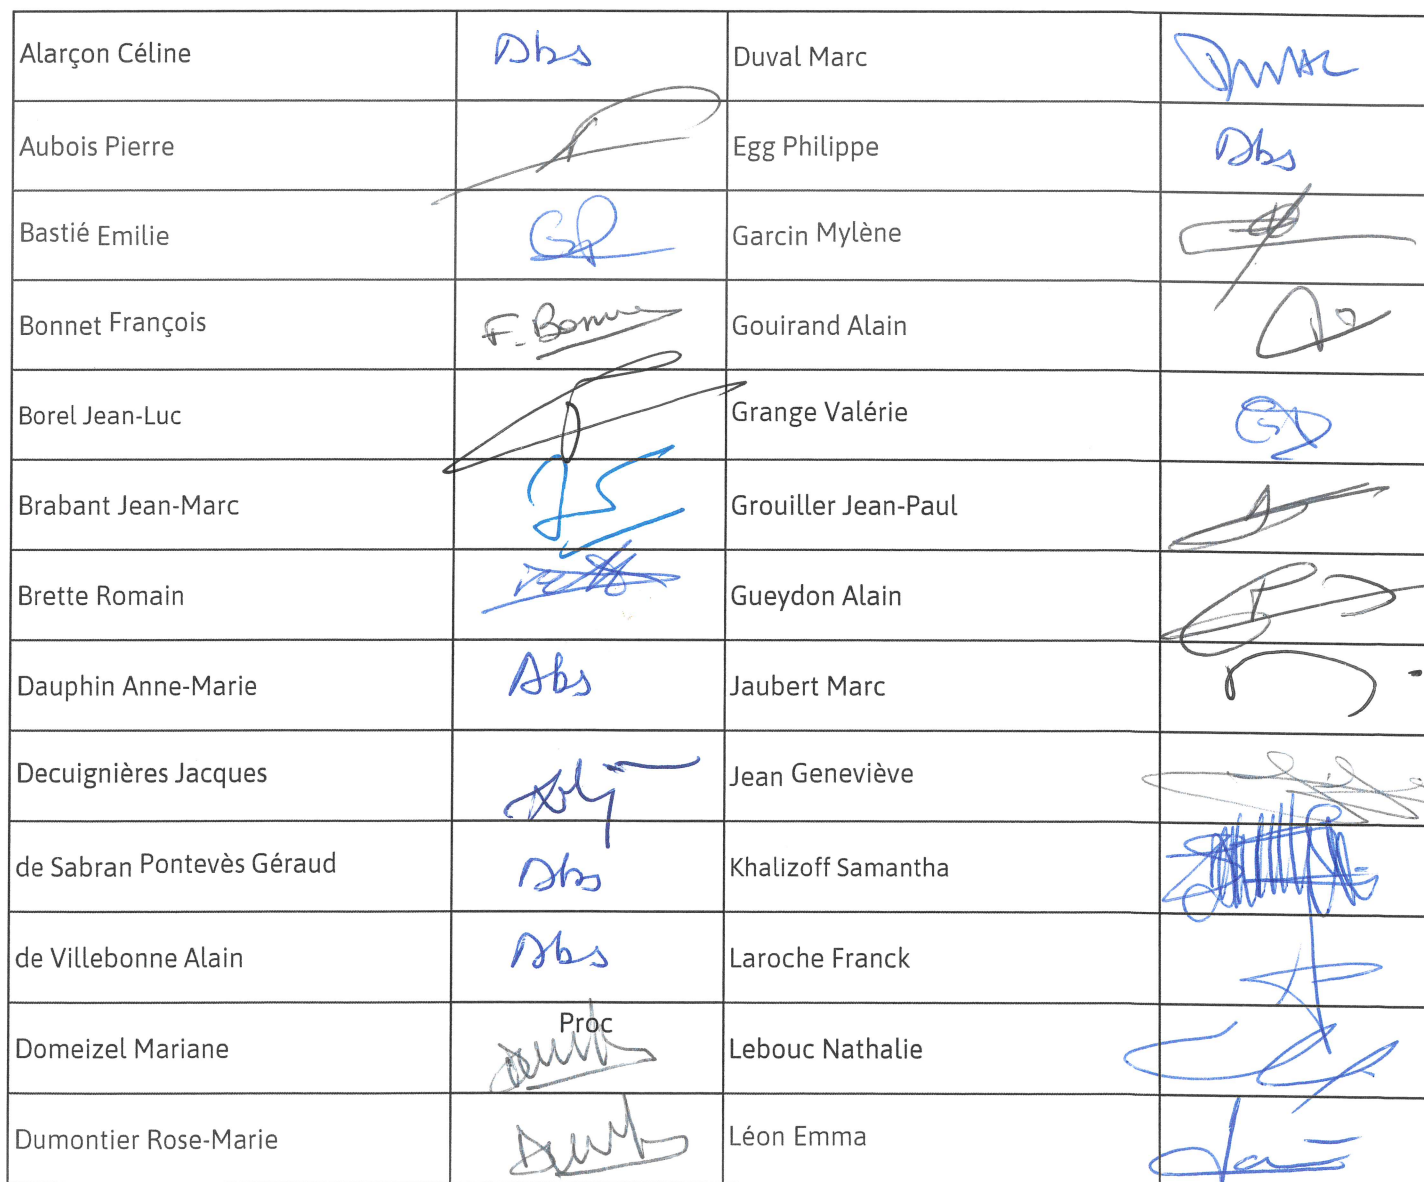 Alarçon Céline Abs Duval Marc DUVAL
Aubois Pierre Egg Philippe Abs
Bastié Emilie Garcin Mylène
Bonnet François F. Bonnet Gouirand Alain
Borel Jean-Luc Grange Valérie
Brabant Jean-Marc Grouiller Jean-Paul
Brette Romain Gueydon Alain
Dauphin Anne-Marie Abs Jaubert Marc
Decuignières Jacques Jean Geneviève
de Sabran Pontevès Géraud Abs Khalizoff Samantha
de Villebonne Alain Abs Laroche Franck
Domeizel Mariane Proc Lebouc Nathalie
Dumontier Rose-Marie Léon Emma